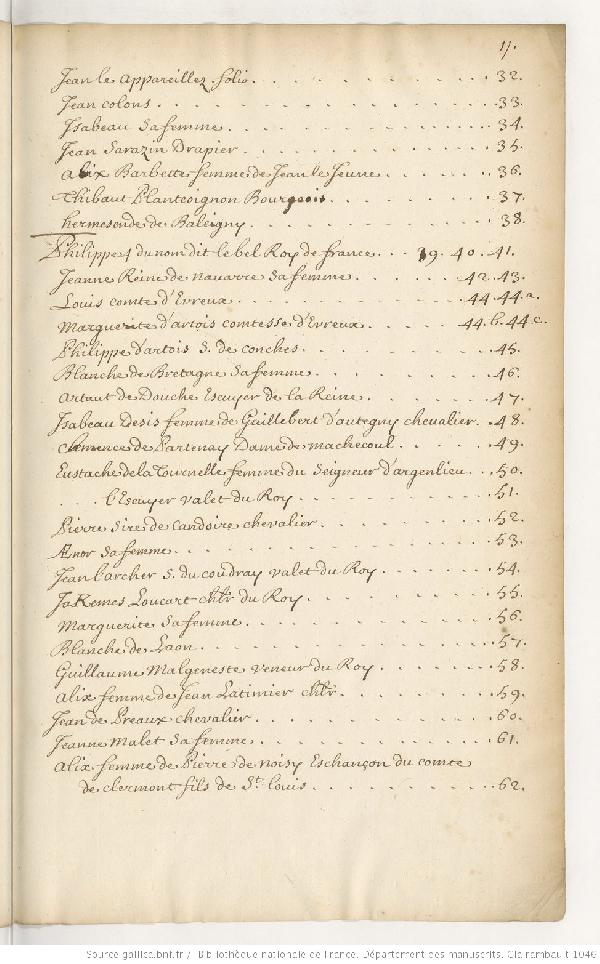 11.
Jean le appareillez. folio. . . . . . . . . . . 32.
Jean colons . . . . . . . . . . . . . . 33.
Isabeau Safemme. . . . . . . . . . . . 34.
Jean Sarazin Drapier. . . . . . . . . . . 35.
alix Barbette femme de Jean le Jeune. . . . . 36.
Thibaut Plantcoignon Bourgeois. . . . . . . 37.
hermesende de Baleigny. . . . . . . . . . 38.
Philippe 4 du nom dit le bel Roy de france. . . 39. 40. 41.
Jeanne Reine de navarre Safemme. . . . . 42. 43.
Louis comte d'Evreux. . . . . . . . . 44. 44.a.
Marguerite d'artois comtesse d'Evreux. . . . . 44.b. 44.c.
Philippe d'artois S. de conches. . . . . . . . 45.
Blanche de Bretagne Safemme. . . . . . . . 46.
artaut de Douche Escuyer de la Reine. . . . . 47.
Isabeau Desis femme de Guillebert d'autegny chevalier. 48.
Clemence de Partenay Dame de machecoul. . . . 49.
Eustache de la Tournelle femme du Seigneur d'argenlieu. . . 50.
. . . l'Escuyer valet du Roy. . . . . . . . . 51.
Pierre Sire de Candoire chevalier. . . . . . . 52.
Ænor Safemme. . . . . . . . . . . . . . 53.
Jean l'archer S. du coudray valet du Roy. . . . . 54.
JaKemes Loucart chlr du Roy. . . . . . . . 55.
Marguerite Safemme. . . . . . . . . . . 56.
Blanche de Laon. . . . . . . . . . . . . 57.
Guillaume Malgeneste veneur du Roy. . . . . . 58.
alix femme de Jean Latimier chlr. . . . . . . 59.
Jean de Preaux chevalier. . . . . . . . . . 60.
Jeanne Malet Safemme. . . . . . . . . . 61.
alix femme de Pierre de noisy Eschançon du comte
de clermont fils de St. Louis. . . . . . . . . 62.
Source gallica.bnf.fr / Bibliothèque nationale de France. Département des manuscrits. Clairambault 1046